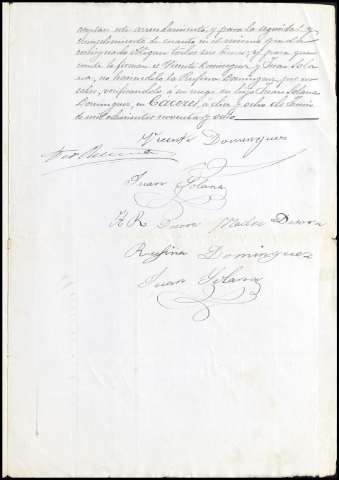 aceptan este arrendamiento, y para la seguridad y
cumplimiento de cuanto en el mismo queda
consignado obligan todos sus bienes, y para que
conste lo firman el Vicente Dominguez y Juan Sola
na, no haciendolo la Rufina Dominguez por no
saber, verificandolo á su ruego su hijo Juan Solana
Dominguez, en Caceres á ocho de Junio
de mil ochocientos noventa y ocho.
Vicente Dominguez
Juan Solana
A R Madre
Rufina Dominguez
Juan Solana